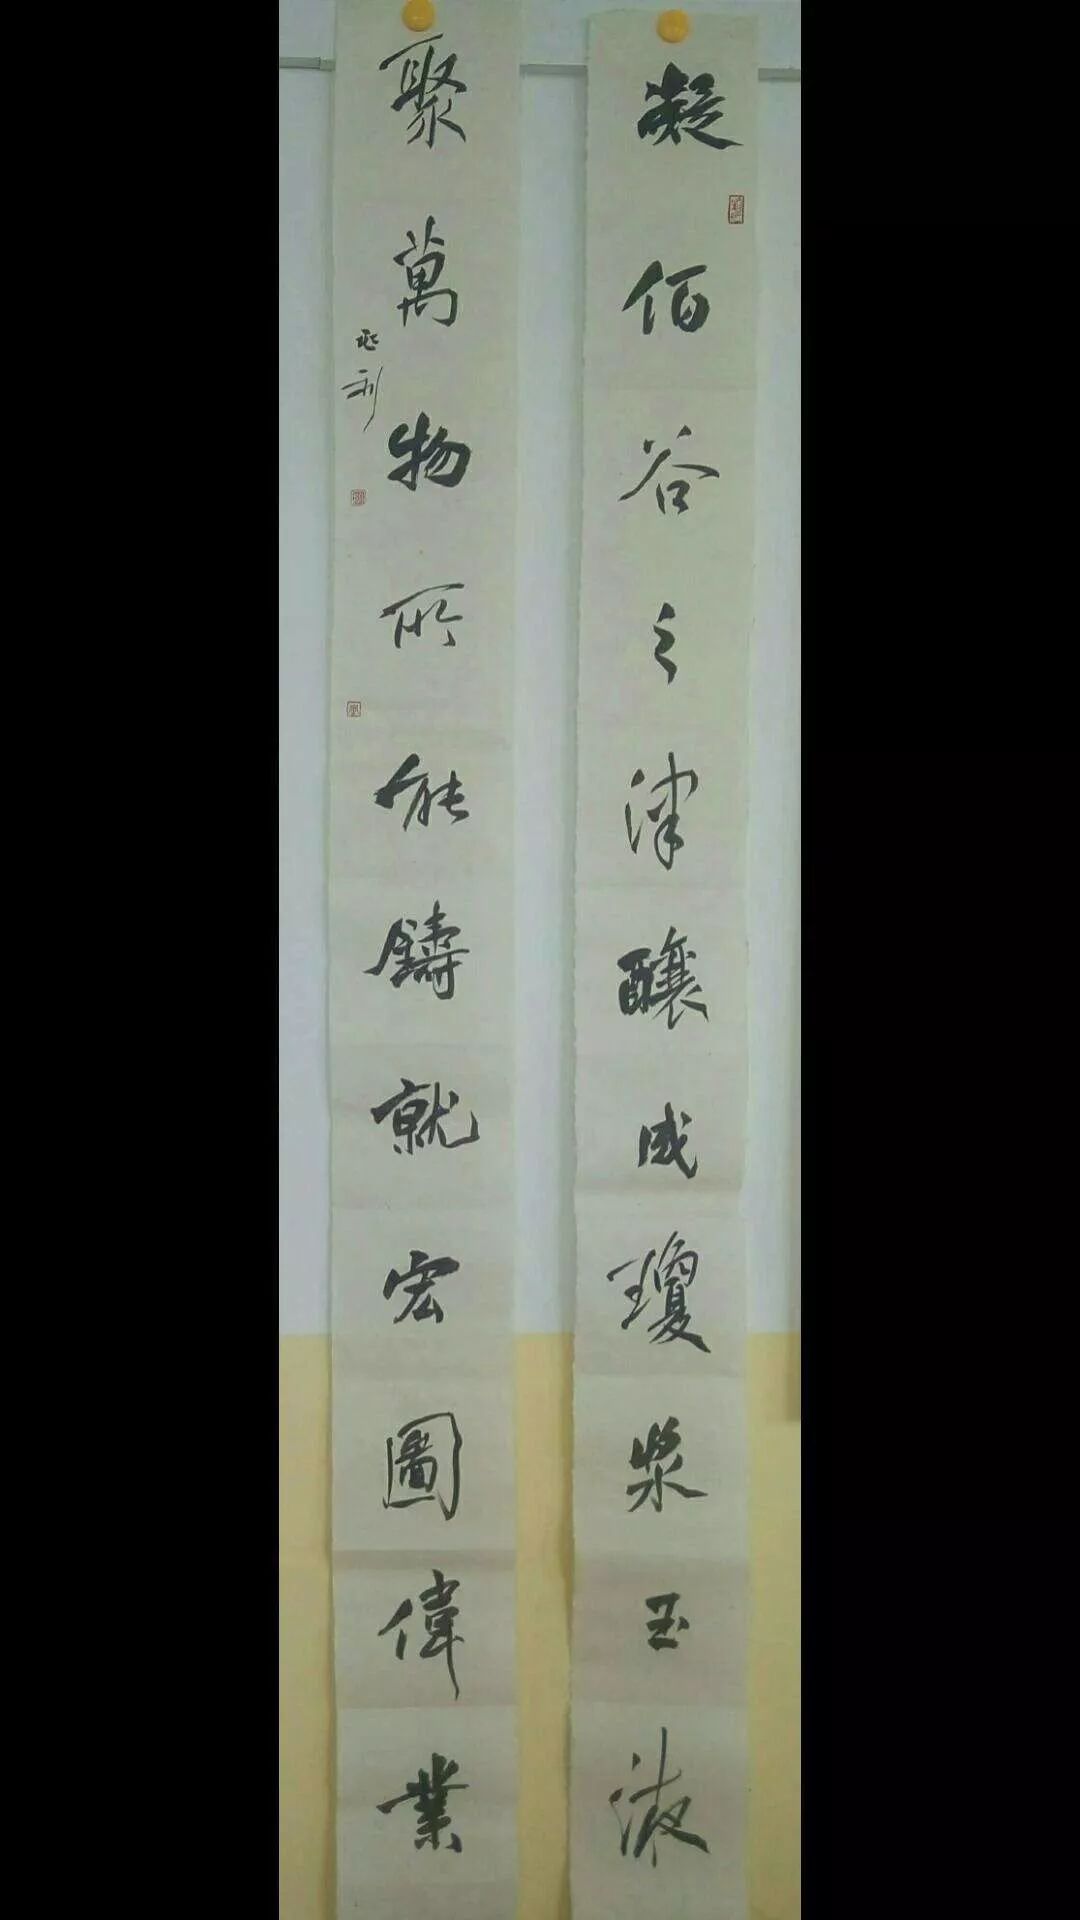 凝佰谷之津釀成瓊漿玉液
聚萬物所能鑄就宏圖偉業